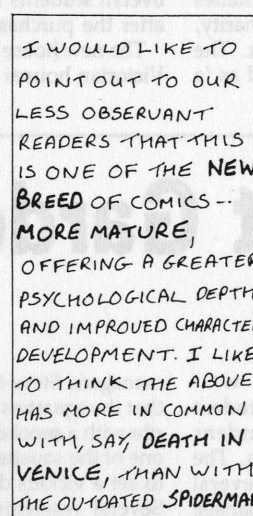 I WOULD LIKE TO
POINT OUT TO OUR
LESS OBSERVANT
READERS THAT THIS
IS ONE OF THE NEW
BREED OF COMICS --
MORE MATURE,
OFFERING A GREATER
PSYCHOLOGICAL DEPTH
AND IMPROVED CHARACTE
DEVELOPMENT. I LIKE
TO THINK THE ABOVE
HAS MORE IN COMMON
WITH, SAY, DEATH IN
VENICE, THAN WITH
THE OUTDATED SPIDERMAN